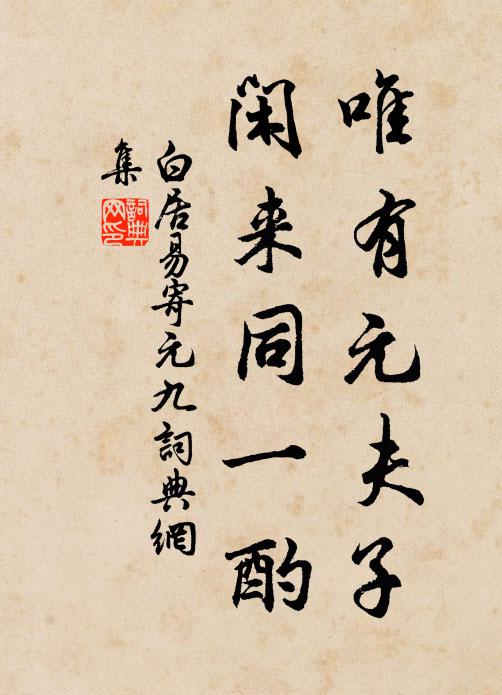 唯有元夫子
閑来同一酌
白居易寄元九詞典網
集
詞典
网印